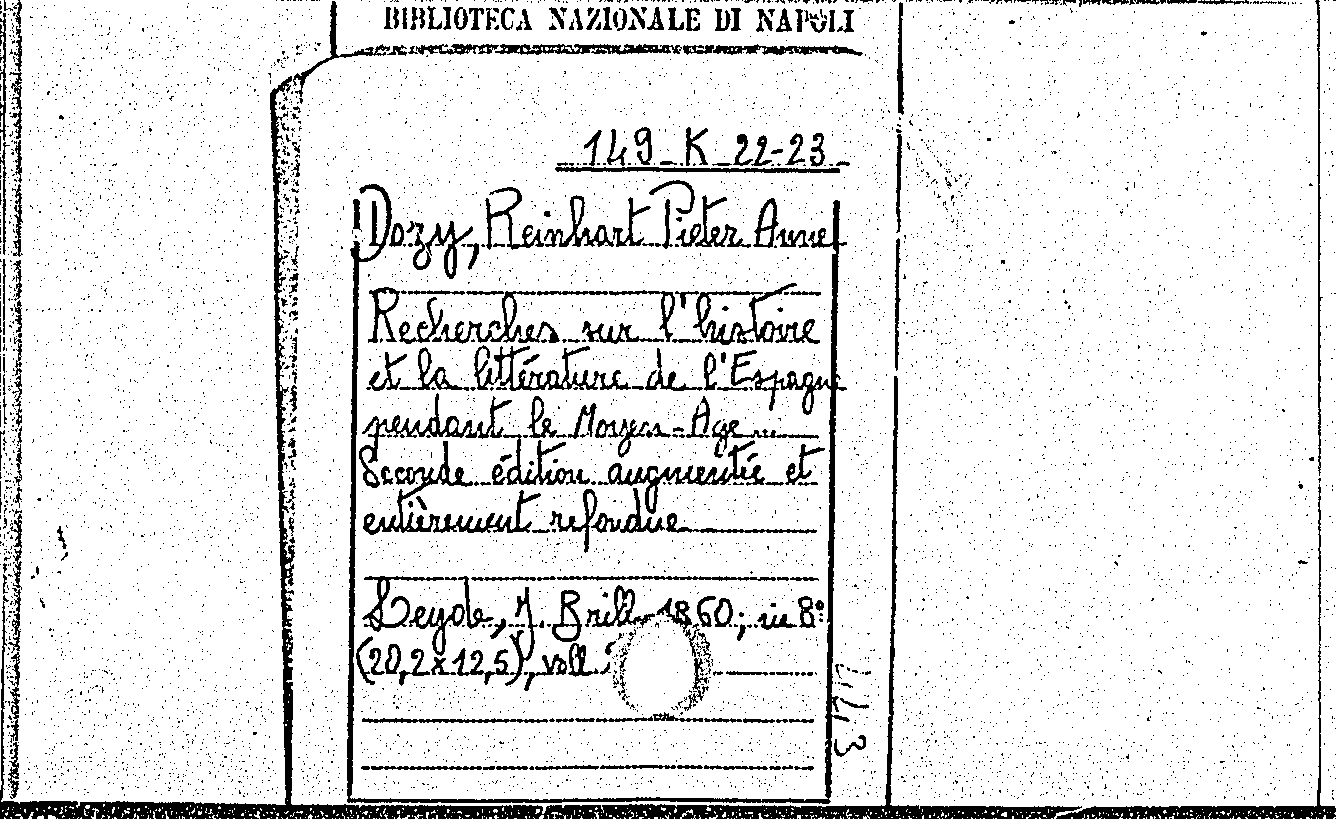 BIBLIOTECA NAZIONALE DI NAPOLI
149 K 22-23
Dozy, Reinhart Pieter Anne
Recherches sur l'histoire
et la littérature de l'Espagne
pendant le Moyen-Age...
Seconde édition augmentée et
entièrement refondue
Leyde, J. Brill 1860; in 8°
(20,2x12,5), voll.